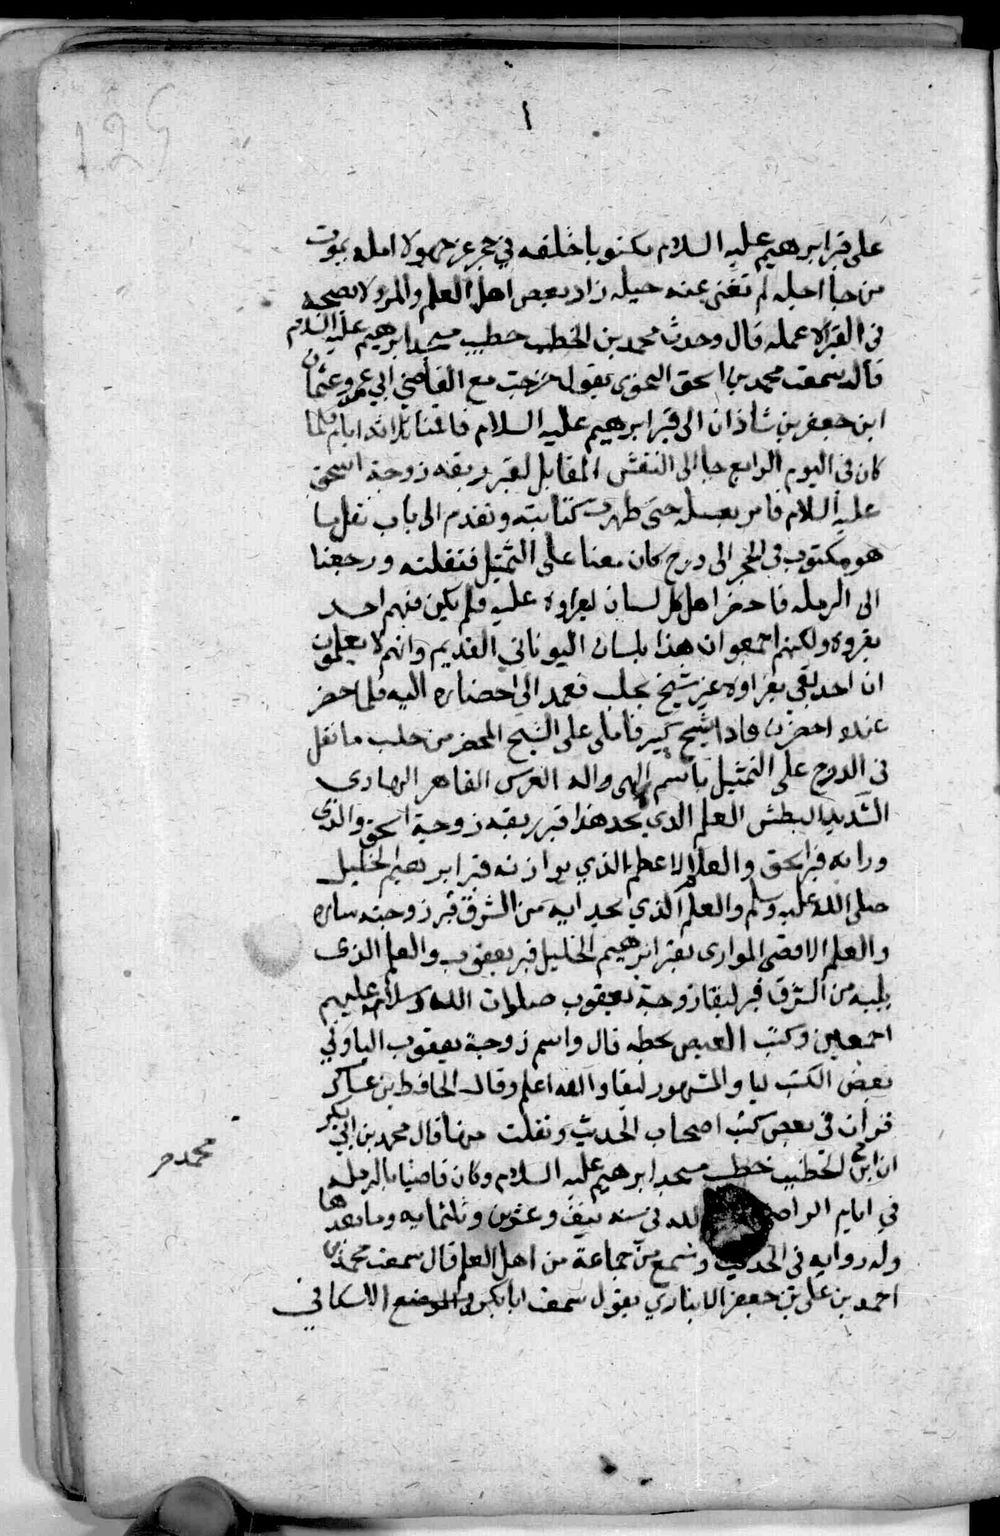 ١
129
على قبر ابرهيم عليه السلام مكتوبا خلفه في حجر غر جهولا امله يموت
من جا اجله لم تغنى عنه حيله زاد بعض اهل العلم والمرو لا يصحبه
فى القبر الا عمله قال وحدث محمد بن الخطيب خطيب مسجد ابرهيم عليه السلام
قال سمعت محمد بن اسحق النحوى يقول خرجت مع القاضي ابي عمرو عثمان
ابن جعفر بن شاذان الى قبر ابرهيم عليه السلام فاقمنا ثلاثه ايام فلما
كان فى اليوم الرابع جا الى النقش المقابل لقبر ربقه زوجة اسحق
عليه السلام فامر بغسله حتى ظهرت كتابته وتقدم الى بان نقل ما
هو مكتوب فى الحجر الى درج كان معنا على التمثيل فنقلته ورجعنا
الى الرمله فاحضر اهل كل لسان ليقراوه عليه فلم يكن فيهم احد
يقروه ولكنهم اجمعوا ان هذا بلسان اليوناني القديم وانهم لا يعلمون
ان احد بقي يقراوه غير شيخ بحلب فعمد الى احضاره اليه فلما حضر
عنده احضرنى فاذا شيخ كبير فاملى على الشيخ المحضر من حلب ما نقل
فى الدرج على التمثيل باسم الهى واله العرش القاهر الهادى
الشديد البطش العلم الذي بحد هذا قبر ربقه زوجة اسحق والذي
وراه قبر اسحق والعلم الاعظم الذي يوازنه قبر ابرهيم الخليل
صلى الله عليه وسلم والعلم الذي بحدايه من الشرق قبر زوجته ساره
والعلم الاقصى الموازى لقبر ابرهيم الخليل قبر يعقوب والعلم الذى
يليه من الشرق قبر ليقا زوجة يعقوب صلوات الله وسلامه عليهم
اجمعين وكتب العيص بخطه قال واسم زوجة يعقوب اليا وفي
بعض الكتب ليا والمشهور ليقا والله اعلم وقال الحافظ بن عساكر
قرات فى بعض كتب اصحاب الحديث ونقلت منها قال محمد بن ابى بكر
ابن محمد الخطيب خطيب مسجد ابرهيم عليه السلام وكان قاضيا بالرمله
في ايام الراضى الله في سنه نيف وعشرين وثلثمايه وما بعدها
وله روايه فى الحديث وسمع من جماعة من اهل العلم قال سمعت محمد بن
احمد بن على بن جعفر الانباري يقول سمعت ابا بكر الاسكافي